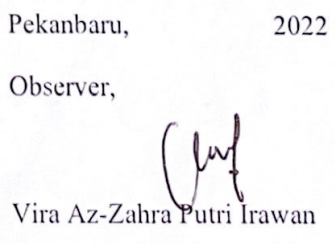 Pekanbaru, 2022
Observer,
Vira Az-Zahra Putri Irawan